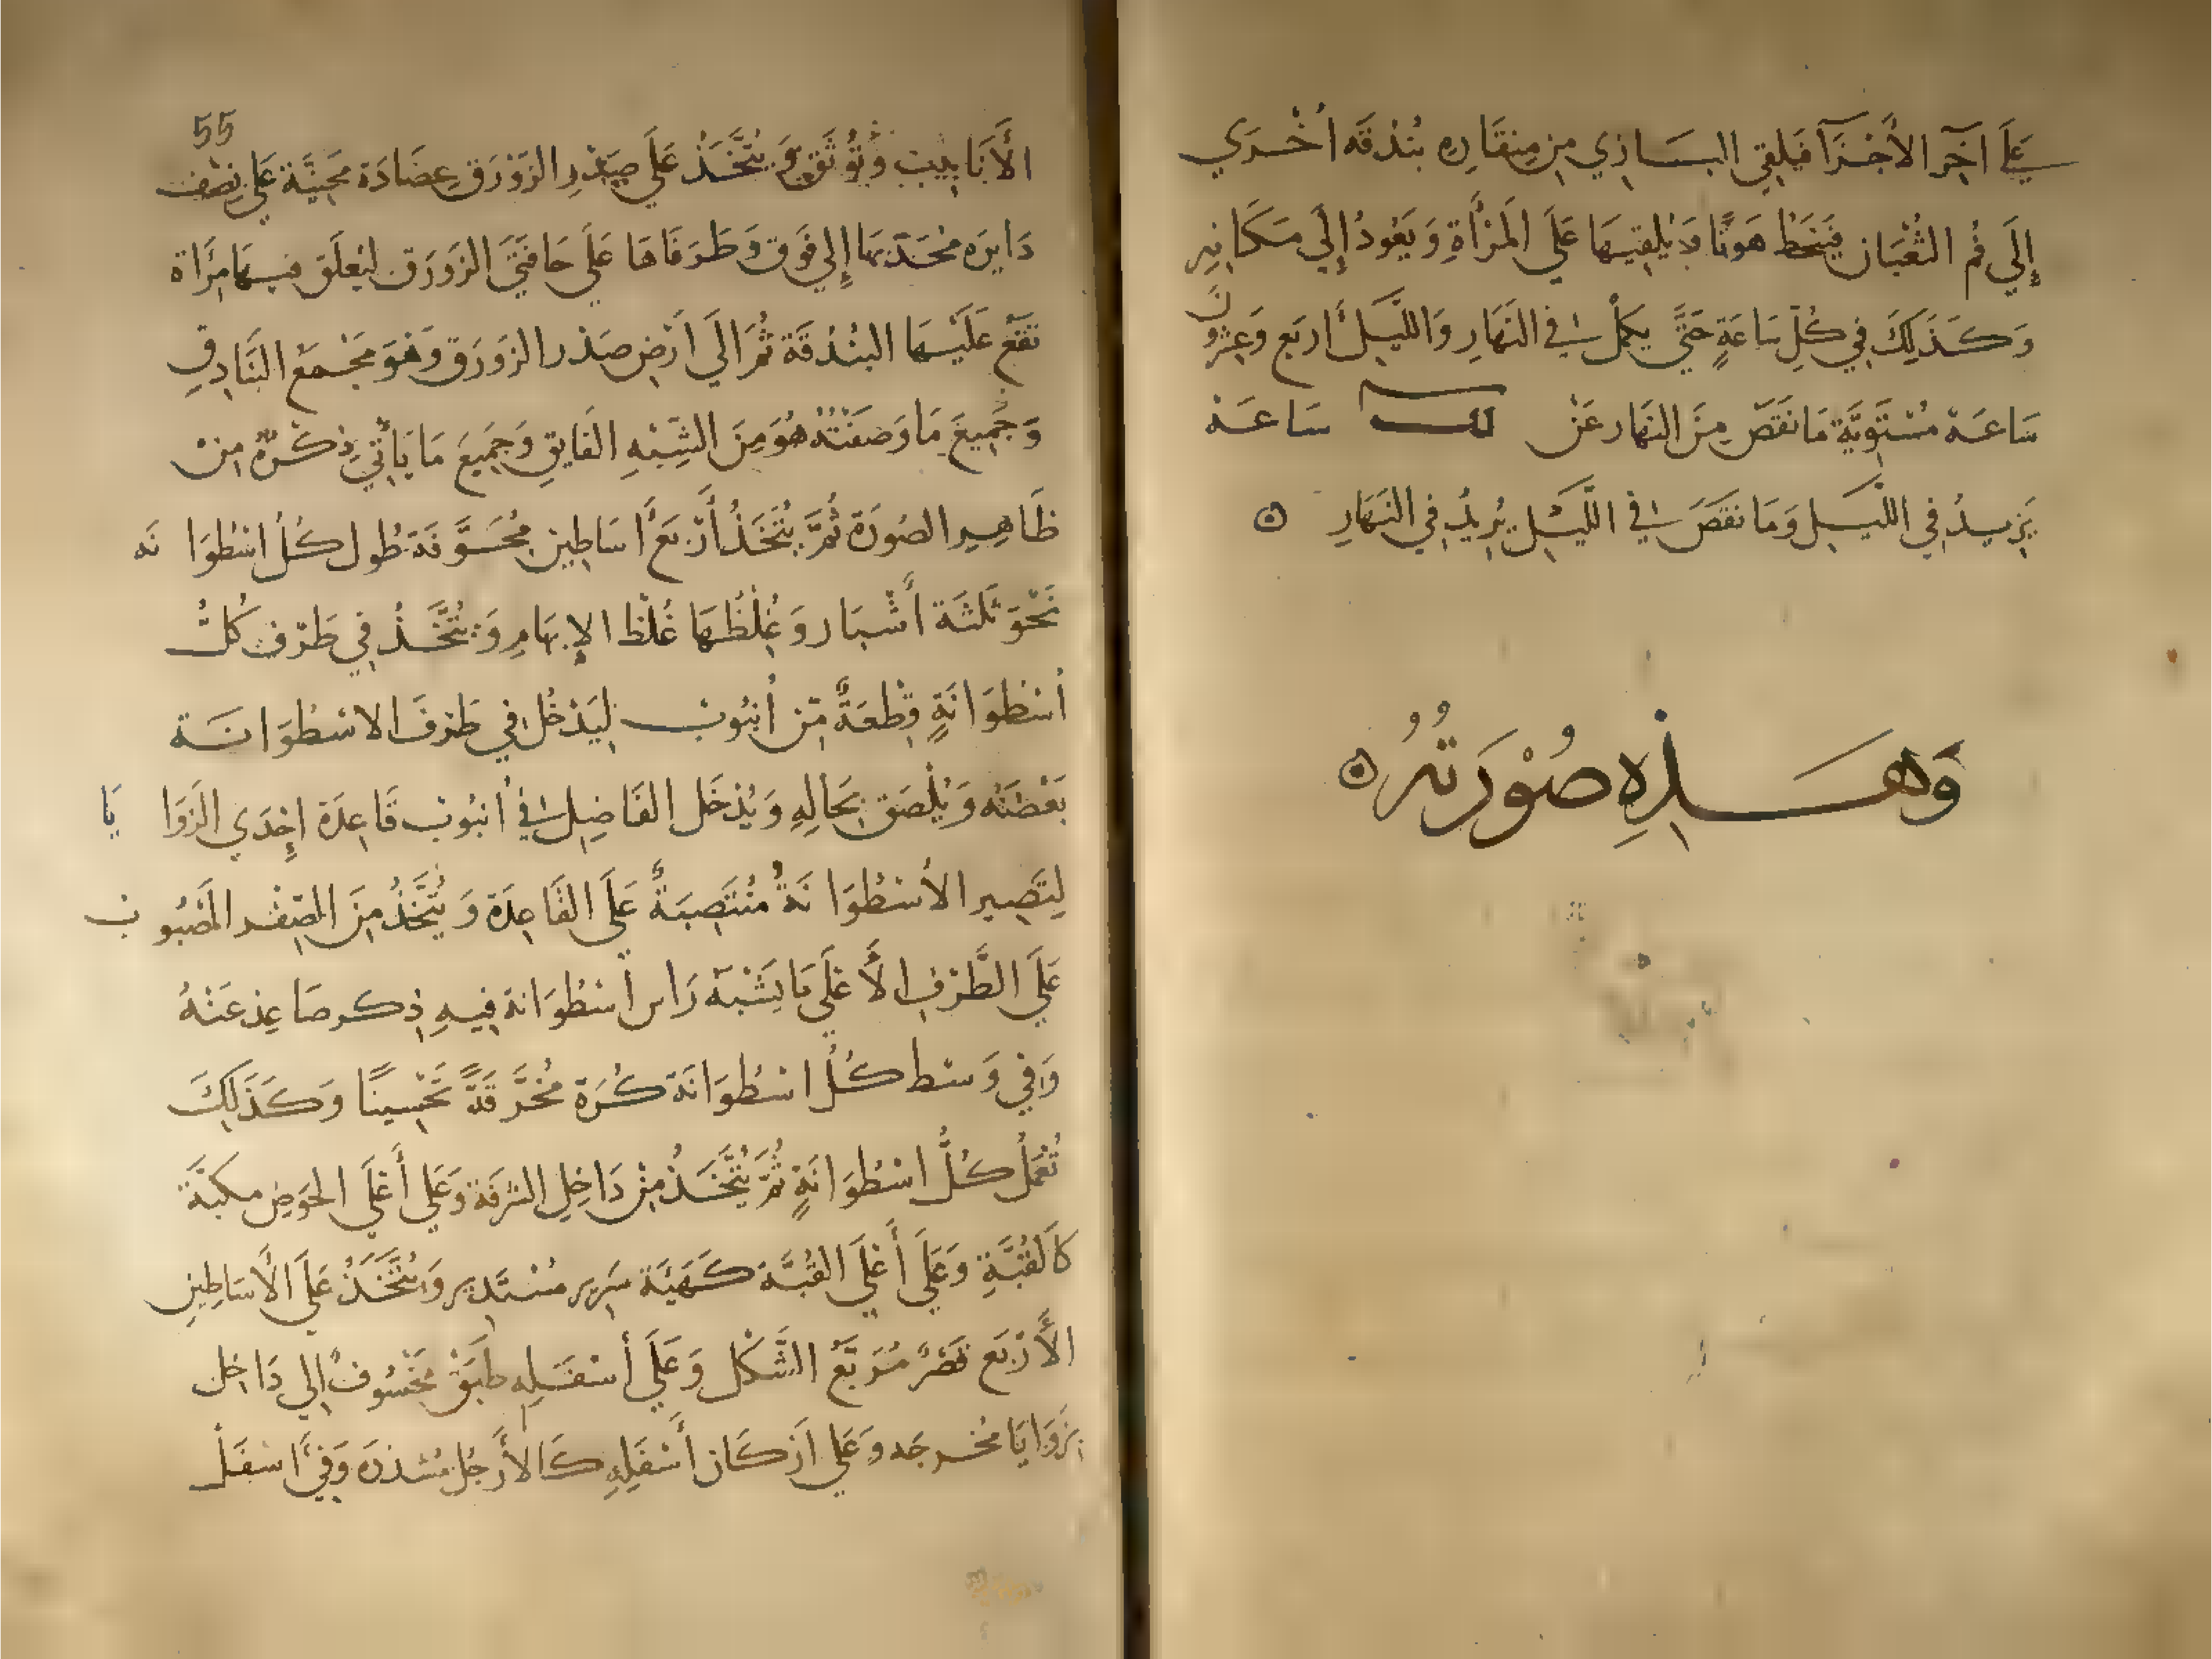 على آخر الأجزآ فيلقي البازي من منقاره بندقه أخري
إلي فم الثعبان فينحط هونا ويلقيها علي المرأة ويعود إلي مكانه
وكذلك في كل ساعة حتي يكمل في النهار والليل أربع وعشرون
ساعة مستوية ما نقص من النهار عن ساعة
يزيد في الليل وما نقص في الليل يزيد في النهار
وهذه صورته
55
الأنابيب وتوثق ويتخذ علي صدر الزورق عضادة محنية علي نصف
دايره محدبها إلي فوق وطرفاها علي حافتي الزورق ليعلق فيها مرأة
تقع عليها البندقة ثم الي أرض صدر الزورق وهو مجمع البنادق
وجميع ما وصفته هو من الشبه الفايق وجميع ما يأتي ذكره من
ظاهر الصورة ثم يتخذ أربع أساطين مجوفة طول كل اسطوانه
نحو ثلثة أشبار وغلظها غلظ الإبهام ويتخذ في طرف كل
أسطوانة قطعة من أنبوب ليدخل في طرف الاسطوانة
بعضه ويلصق بحاله ويدخل الفاضل في أنبوب قاعدة إحدي الزوايا
لتصير الأسطوانة منتصبة علي القاعدة ويتخذ من الصفر المصبوب
علي الطرف الأعلي ما يشبه راس أسطوانة فيه ذكر صاعد عنه
وفي وسط كل اسطوانة كرة مخرقة تحسينا وكذلك
تعمل كل اسطوانة ثم يتخذ من داخل الشرفة وعلي أعلي الحوض مكبة
كالقبة وعلي أعلي القبة كهيئة سرير مستدير ويتخذ علي الأساطين
الأربع قصر مربع الشكل وعلي أسفله طبق مخسوف الي داخل
بزوايا مخرجه وعلي أركان أسفله كالأرجل وفي أسفل